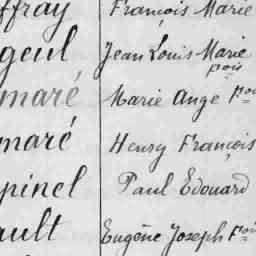 ffray François Marie
geul Jean Louis Marie
fois
maré Marie Ange fois
maré Henry François
pinel Paul Edouard
ault Eugène Joseph fois